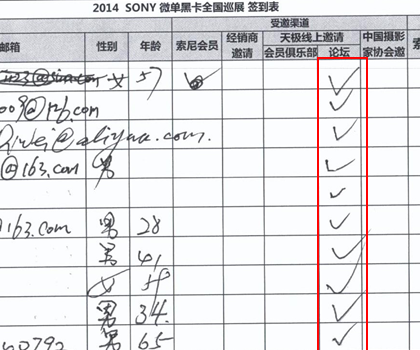 2014 SONY 微单黑卡全国巡展 签到表
受邀渠道
邮箱 性别 年龄 索尼会员 经销商邀请 天极线上邀请 中国摄影家协会邀
会员俱乐部 论坛
女 57
@126.com
@aliyun.com.
@163.com 男
@163.com 男 28
男 41
女
男 34.
0792 男 65